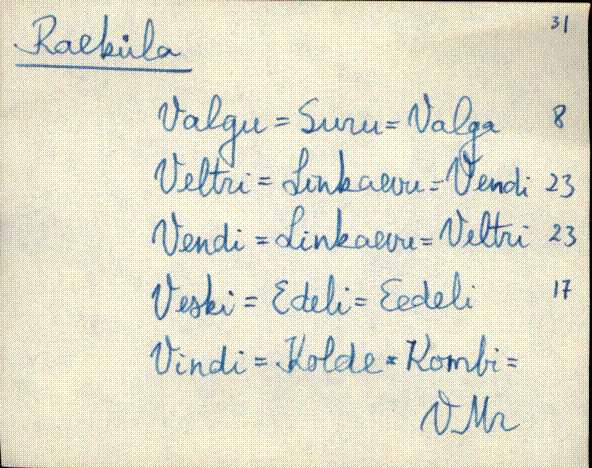 31
Raeküla
Valgu = Suru = Valga 8
Veltri = Linkaevu = Vendi 23
Vendi = Linkaevu = Veltri 23
Veski = Edeli = Eedeli 17
Vindi = Kolde = Kombi =
V. Mr